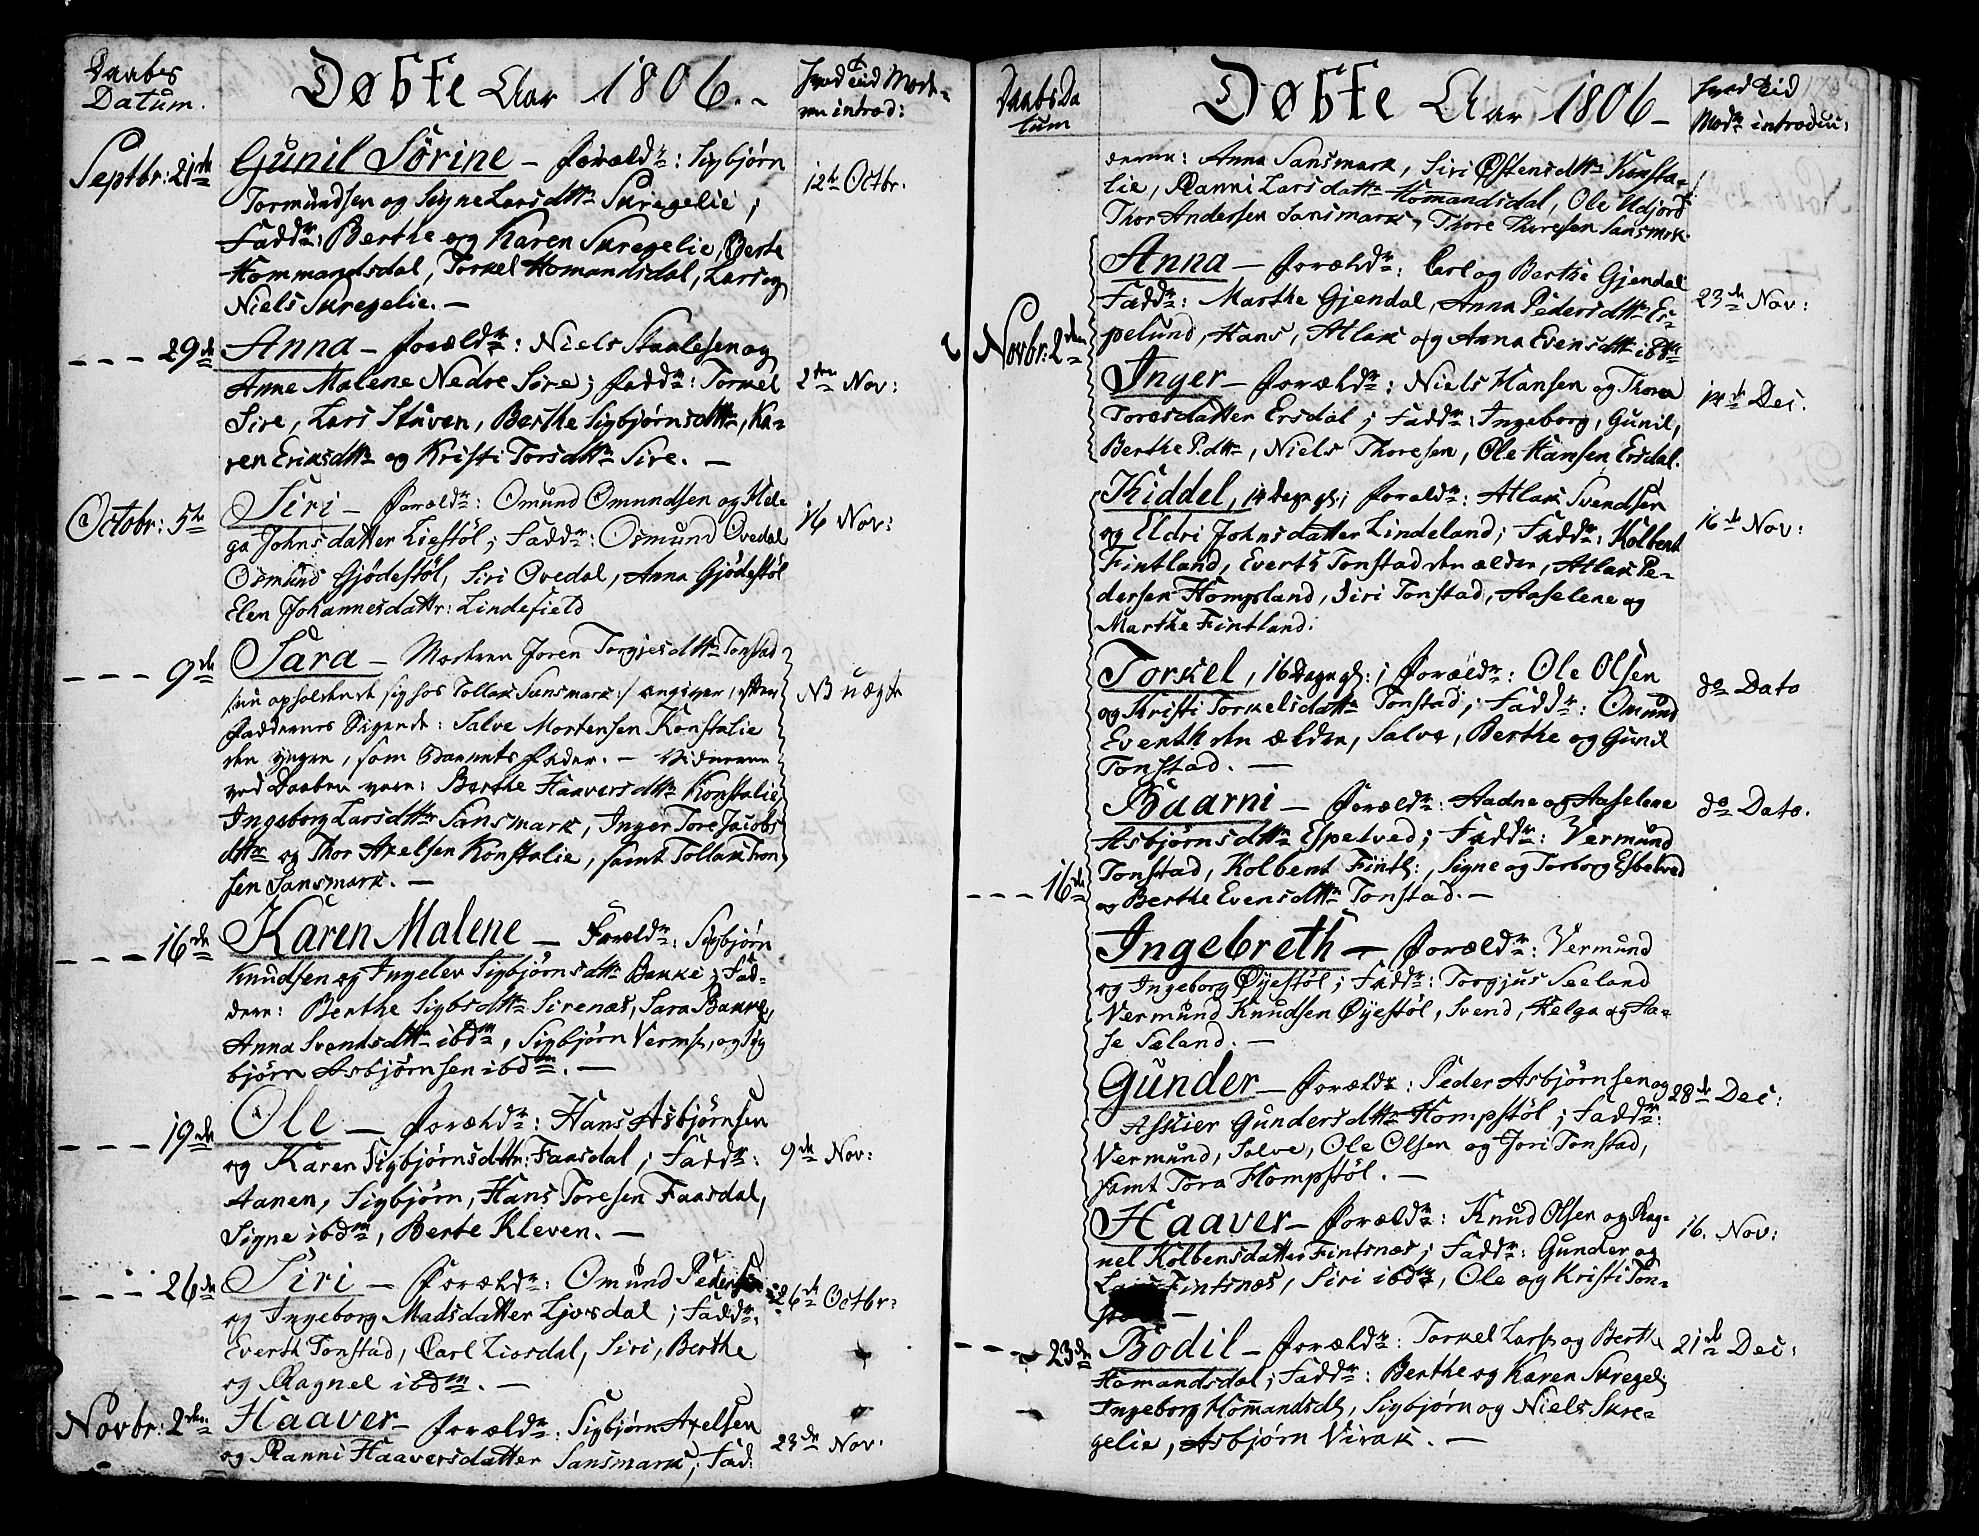 Daabes
Datum.
Døbte Aar 1806.
hvad Tid Mod-
ren introd:
Septbr: 21de
Gunil Sørine – Foræld: Sigbjørn
Tormundsen og Signe Larsdttr Skregelie;
Fadd: Berthe og Karen Skregelie, Berte
Hommandsdal, Torkel Homandsdal, Lars og
Niels Skregelie. –
12te Octbr.
– – – 29de
Anna – Foræld: Niels Staalesen og
Anne Malene Nedre Sire; Fadd: Torkel
Sire, Lars Stuven, Berthe Sigbjørnsdttr, Ka-
ren Eriksdttr og Kristi Torsdttr Sire. –
2den Nov:
Octobr: 5te
Siri – Foræld: Omund Omundsen og Hel-
ga Johnsdatter Liestøl; Fadd: Osmund Ovedal
Osmund Gjødestøl, Siri Ovedal, Anna Gjødestøl
Elen Johannesdattr: Lindefield
16 Nov:
– – – 9de
Sara – Moderen Joren Torgjesdttr Tonstad
/: nu opholdende sig hos Tollak Sansmark :/ angiver, efter
Faddernes Sigende: Salve Mortensen Konstalie
den yngre, som Barnets Fader. – Vidnerne
ved Daaben vare: Berthe Haaversdttr Konstalie
Ingeborg Larsdttr Sansmark, Inger Tore Jacobs
dttr og Thor Axelsen Konstalie, samt Tollak Tron
sen Sansmark. –
NB uægte
– – – 16de
Karen Malene – Foræld: Sigbjørn
Knudsen og Ingelev Sigbjørnsdttr Bakke; Fad-
dere: Berthe Sigbsdttr Sirenæs, Sara Bakke,
Anna Svendsdttr ibdm, Sigbjørn Verms, og Sig
bjørn Asbjørnsen ibdm. –
– – – 19de
Ole – Foræld: Hans Asbjørnsen
og Karen Sigbjørnsdttr: Faasdal; Fadd:
Aanen, Sigbjørn, Hans Toresen Faasdal,
Signe ibdm, Berte Kleven. –
9de Nov:
– – – 26de
Siri – Foræld: Omund Pedersen
og Ingeborg Madsdatter Ljosdal; Fadd:
Everth Tonstad, Carl Liosdal, Siri, Berthe
og Ragnel ibdm. –
26de Octbr:
Novbr: 2den
Haaver – Foræld: Sigbjørn Axelsen
og Ranni Haaversdatter Sansmark; Fad:
23de Nov:
Daabs Da
tum
Døbte Aar 1806 –
hvad Tid
Modr introdu:
derne: Anna Sansmark, Siri Østensdttr Konsta-
lie, Ranni Larsdattr Homandsdal, Ole Udjord
Thor Andersen Sansmark, Thore Thoresen Sansmrk
Novbr: 2den
Anna – Foræld: Carl og Berthe Gjendal
Fadd: Marthe Gjendal, Anna Pedersdttr Es-
pelund, Hans, Atlak og Anna Evensdttr ibdm
23de Nov:
Inger – Foræld: Niels Hansen og Thora
Toresdatter Ersdal; Fadd: Ingeborg, Gunil,
Berthe P.dttr, Niels Thoresen, Ole Hansen Ersdal.
14de Dec.
Kiddel, 14 Dage gl.; Forald: Atlak Svendsen
og Eldri Johnsdatter Lindeland; Fadd: Kolbent
Fintland, Everth Tonstad den ælder, Atlak Pe-
dersen Hompland, Siri Tonstad, Aaselene og
Marthe Fintland:
16de Nov:
Torkel, 16 Dage gl.; Foræld: Ole Olsen
og Kristi Torkelsdattr Tonstad; Fadd: Omund
Eventh den ælder, Salve, Berthe og Gunil
Tonstad. –
do Dato
– – – 16de
Baarni – Foræld: Aadne og Aaselene
Asbjørnsdttr Espetved; Fadd: Vermund
Tonstad, Kolbent Fintl:, Signe og Torborg Esbetved
og Berthe Evensdttr Tonstad. –
do Dato.
Ingebreth – Foræld: Vermund
og Ingeborg Øyestøl; Fadd: Torgjus Seeland
Vermund Knudsen Øyestøl, Svend, Helga og Aa-
se Sæland. –
Gunder – Foræld: Peder Asbjørnsen og
Asskier Gundersdttr Hompstøl; Fadd:
Vermund, Salve, Ole Olsen og Jori Tonstad,
samt Tora Hompstøl. –
28de Dec:
Haaver – Foræld: Knud Olsen og Rag-
nel Kolbensdatter Fintsnæs; Fadd: Gunder og
Fintsnæs, Siri ibdm, Ole og Kristi Ton-
16. Nov:
– – – 23de
Bodil – Foræld: Torkel Larss og Berthe
Homandsdal; Fadd: Berthe og Karen Skregel
Ingeborg Homandsdl, Sigbjørn og Niels Skre-
gelie, Asbjørn Virak. –
21de Dec: